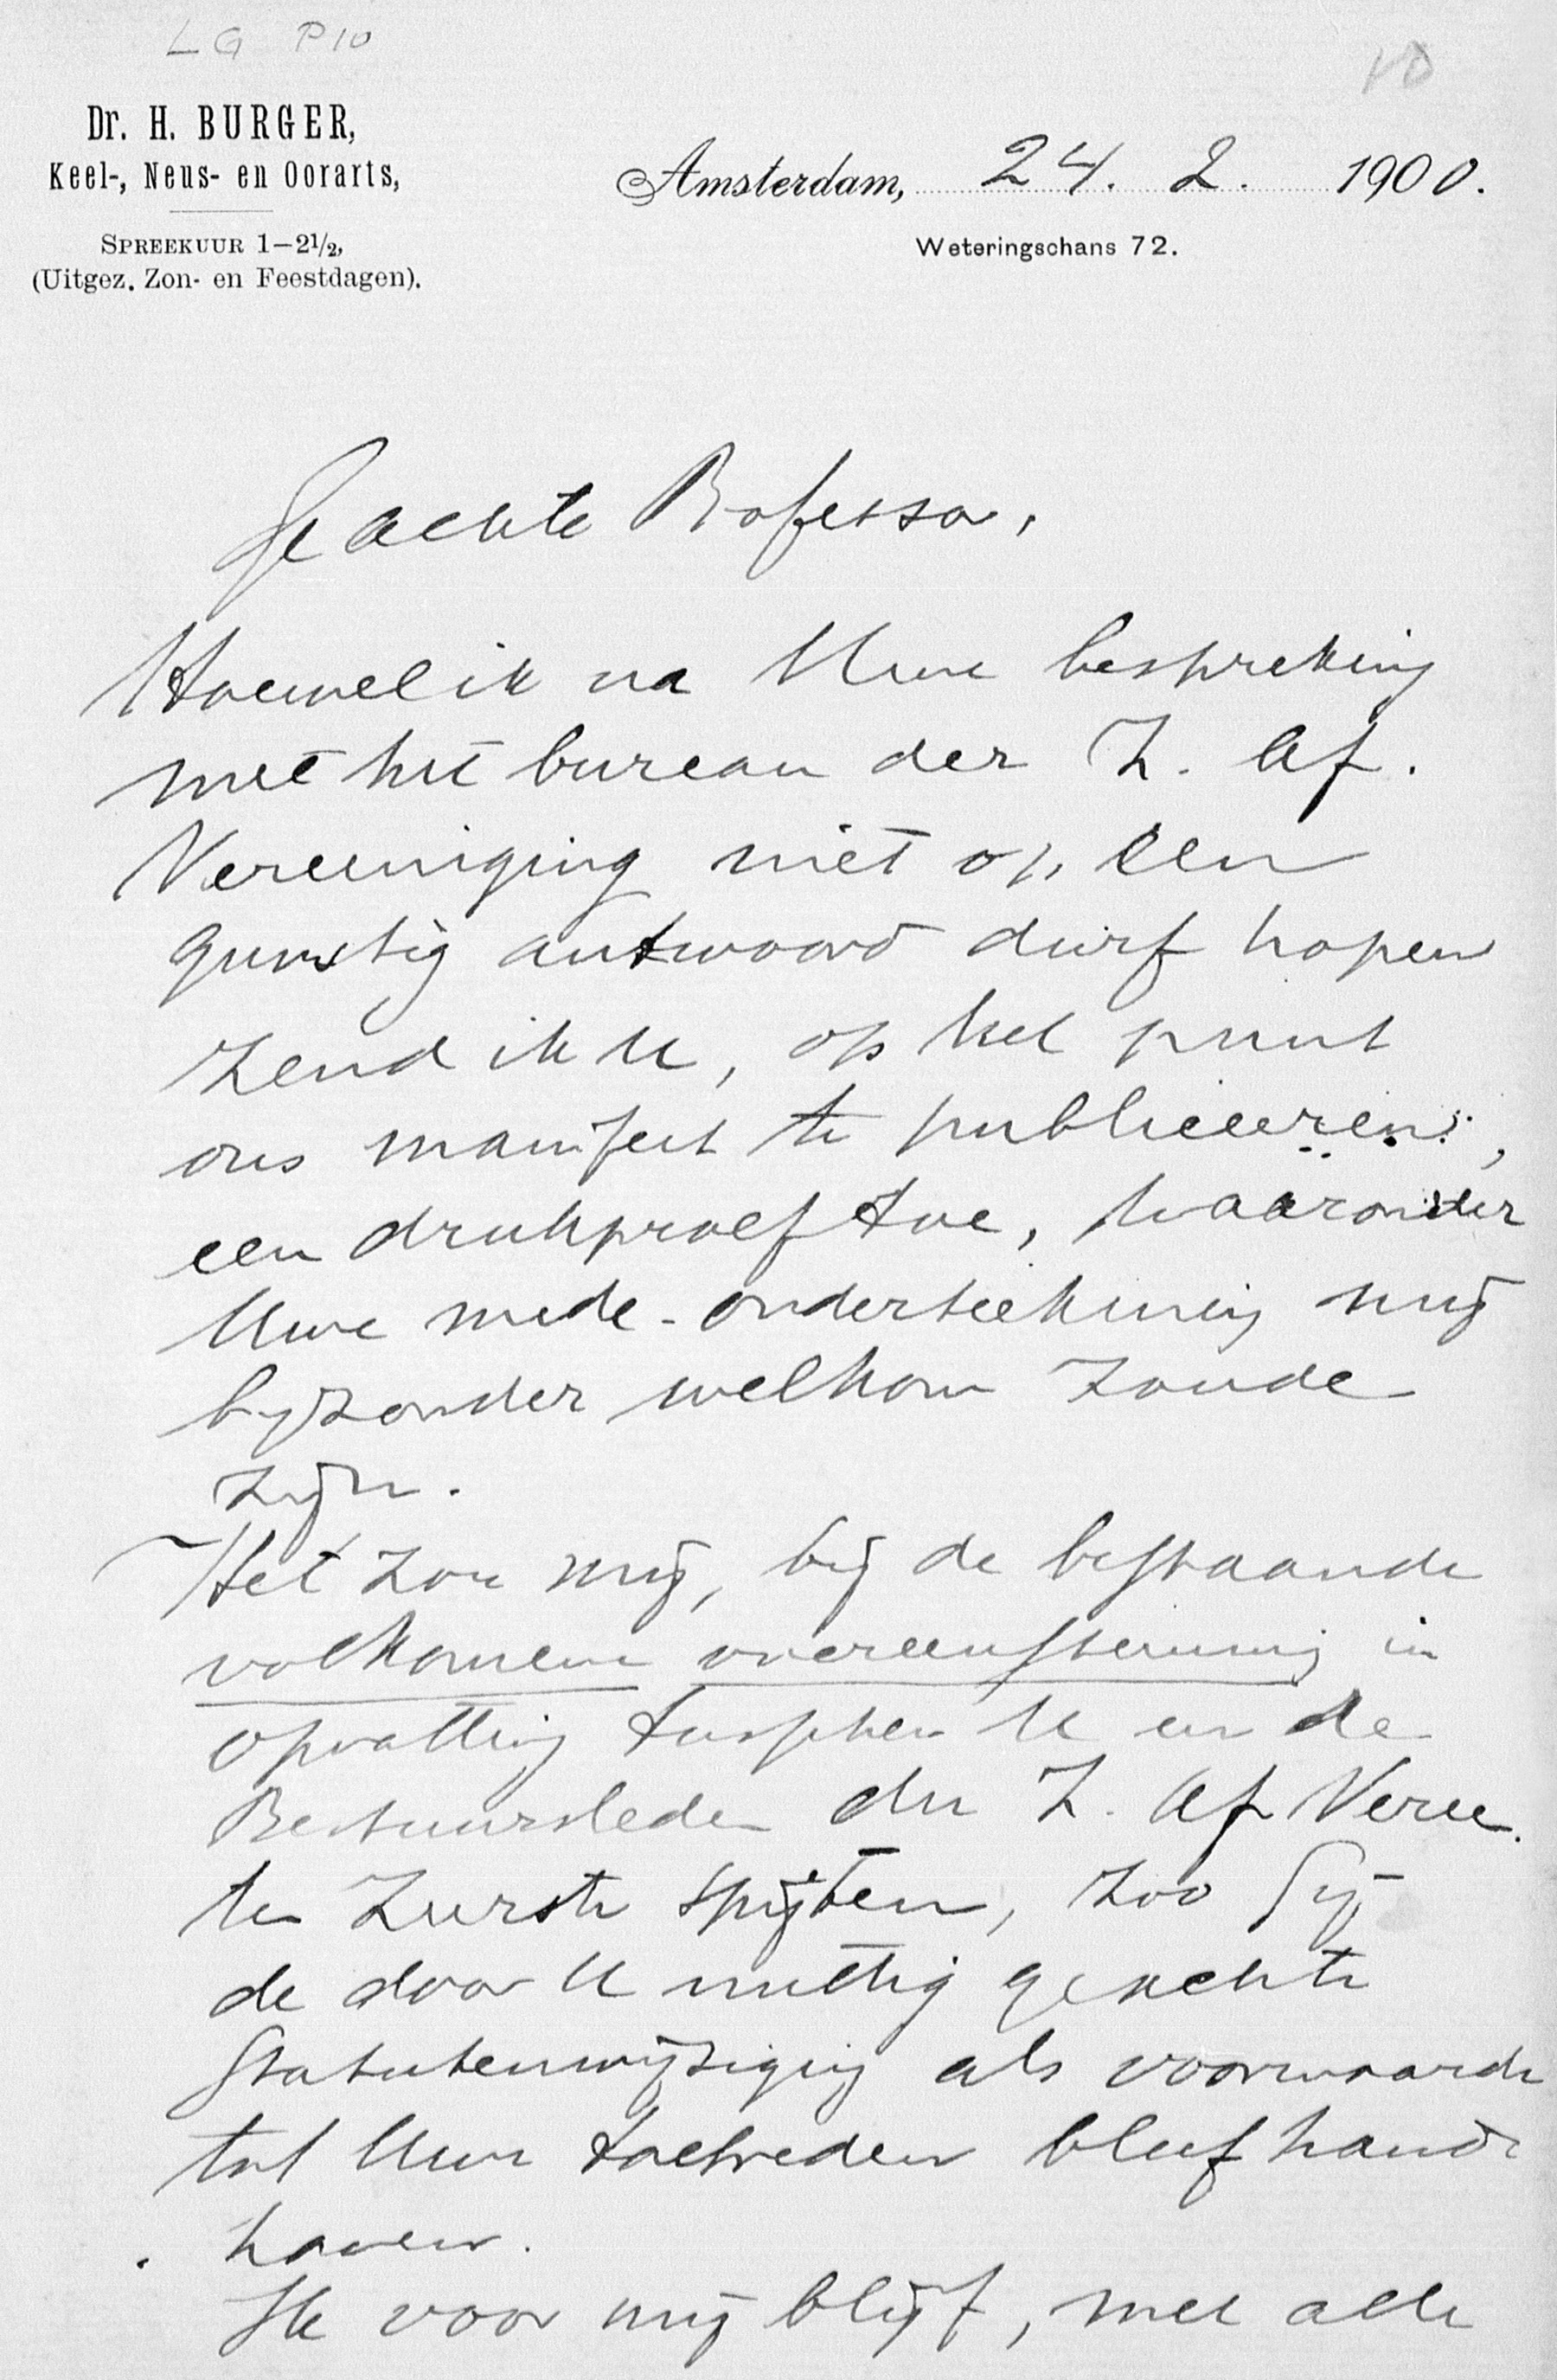 LG P10
10
Dr. H. BURGER,
Keel-, Neus- en Oorarts,
SPREEKUUR 1—2½,
(Uitgez. Zon- en Feestdagen).
Amsterdam, 24. 2. 1900.
Weteringschans 72.
Geachte Professor,
Hoewel ik na Uwe bespreking
met het bureau der Z. Af.
Vereeniging niet op een
gunstig antwoord durf hopen
zend ik U, op het punt
ons manifest te publiceeren,
een drukproef toe, waaronder
Uwe mede-onderteekening mij
bijzonder welkom zoude
zijn.
Het zou mij, bij de bestaande
volkomen overeenstemming in
opvatting tusschen U en de
Bestuursleden der Z. Af Veree.
ten zeerste spijten, zoo Gij
de door U nuttig geachte
Statutenwijziging als voorwaarde
tot Uwe toetreden bleef hand-
haven.
Ik voor mij blijf, met alle